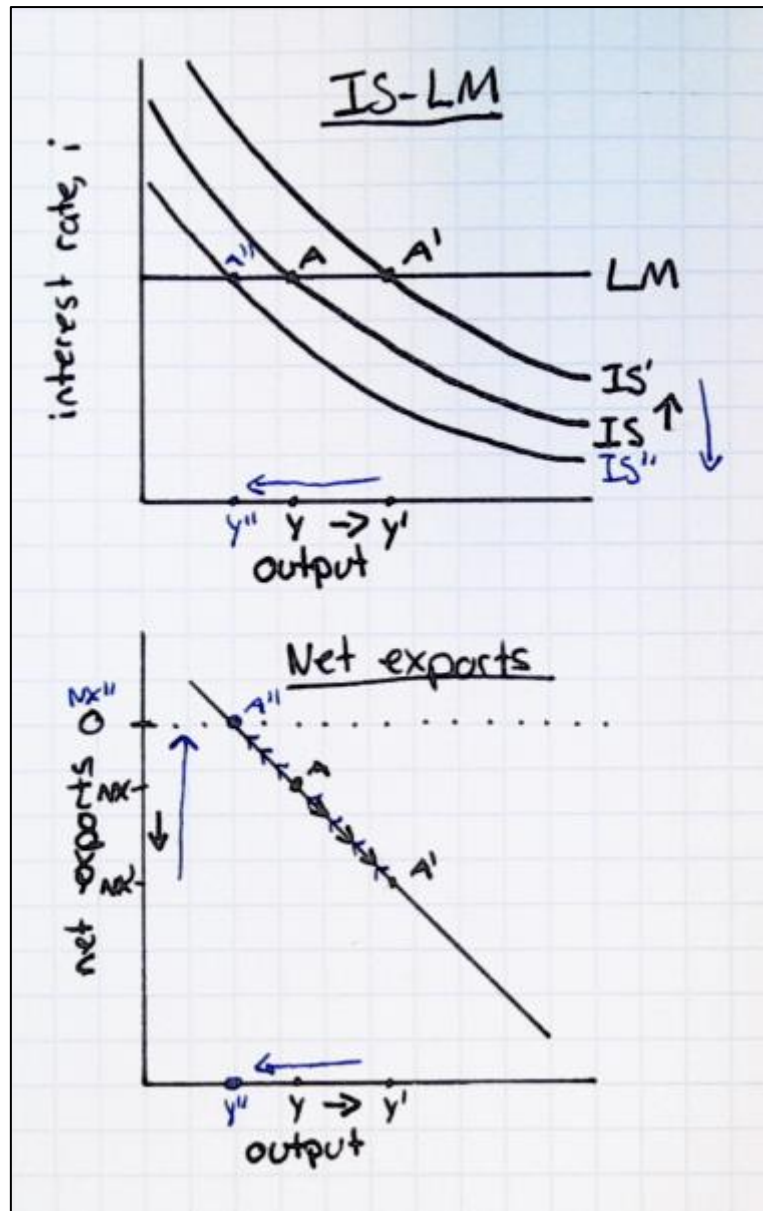 IS-LM
interest rate, i
A''
A
A'
LM
IS'
IS
IS''
y''
y
y'
output
Net exports
net exports
NX''
0
NX
NX'
A''
A
A'
y''
y
y'
output